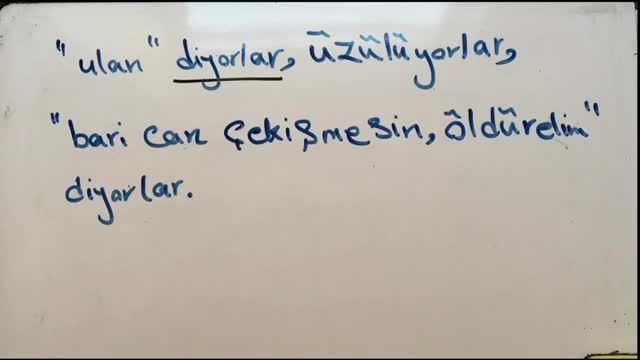 "ulan" diyorlar, üzülüyorlar,
"bari can çekişmesin, öldürelim"
diyorlar.